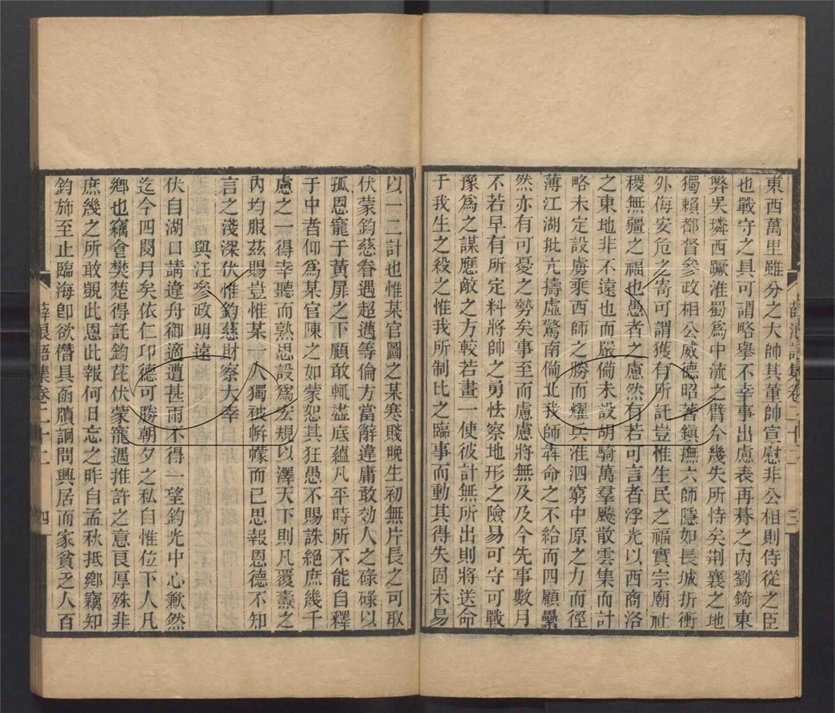 東西萬里雖分之大帥其董帥宣慰非公相則侍從之臣
也戰守之具可謂略舉不幸事出慮表再朞之內劉錡東
弊吳璘西蹶淮蜀爲中流之臂今幾失所恃矣荆襄之地
獨賴都督參政相公威德昭著鎭撫六師隱如長城折衝
外侮安危之寄可謂獲有所託豈惟生民之福實宗廟社
稷無疆之福也愚者之慮然有若可言者浮光以西商洛
之東地非不遠也而嚴備未設胡騎萬羣飈散雲集而計
略未定設虜乘西師之勝而耀兵淮泗窮中原之力而徑
薄江湖批亢擣虛驚南備北我師犇命之不給而四顧纍
然亦有可憂之勢矣事至而慮慮將無及及今先事數月
不若早有所定料將帥之勇怯察地形之險易可守可戰
豫爲之謀應敵之方較若畫一使彼計無所出則將送命
于我生之殺之惟我所制比之臨事而動其得失固未易
以一二計也惟某官圖之某寒賤晚生初無片長之可取
伏蒙鈞慈眷遇超邁等倫方當辭違庸敢効人之碌碌以
孤恩寵于黃屏之下顧敢輒盡底蘊凡平時所不能自釋
于中者仰爲某官陳之如蒙恕其狂愚不賜誅絕庶幾千
慮之一得幸聽而熟思設爲宏規以澤天下則凡覆燾之
內均服茲賜豈惟某一人獨被帡幪而已思報恩德不知
言之淺深伏惟鈞慈財察大幸
與汪參政明遠
伏自湖口請違舟御適遭甚雨不得一望鈞光中心歉然
迄今四閱月矣依仁卬德可勝朝夕之私自惟位下人凡
鄕也竊會樊楚得託鈞芘伏蒙寵遇推許之意良厚殊非
庶幾之所敢覬此恩此報何日忘之昨自孟秋抵鄕竊知
鈞斾至止臨海卽欲僭具函牘詗問興居而家貧乏人百
薛浪語集卷二十二
四